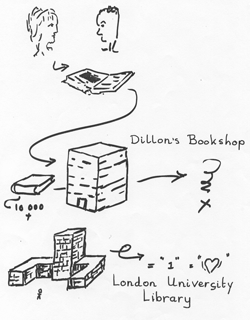 Dillon's Bookshop
10 000
+
= "1" = "(♡)"
London University
Library